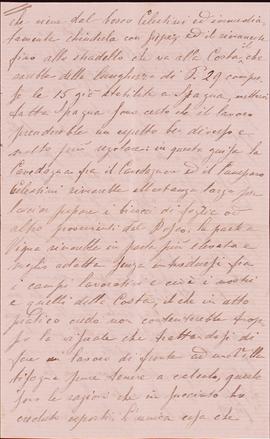 che viene dal bosco Celestini ed immedia
tamente chiuderla con siepaz ed il rimanente
fino allo stradello che va alla Costa, che
sarebbe della lunghezza di P. 29 compre
se le 15 già stabilite a Spagna,
fatta Spagna son certo che il lavoro
prenderebbe un aspetto ben diverso e
molto più regolare: in questa guisa la
fra il ed il
Celestini rimarebbe abbastanza larga per
lasciar i di foglie od
altro provenienti dal la parte
Vigna rimarebbe in parte più elevata e
meglio adatta senza introdursi fra
i campi lavorativi e cioè i nostri
e quelli della Costa, il che in atto
pratico credo non converrebbe trop
po la riguale che trattandosi di
fare un lavoro di fronte ad
bisogna pure tenere a calcolo, queste
sono le ragioni che in succinto ho
creduto esporti. L'unica cosa che